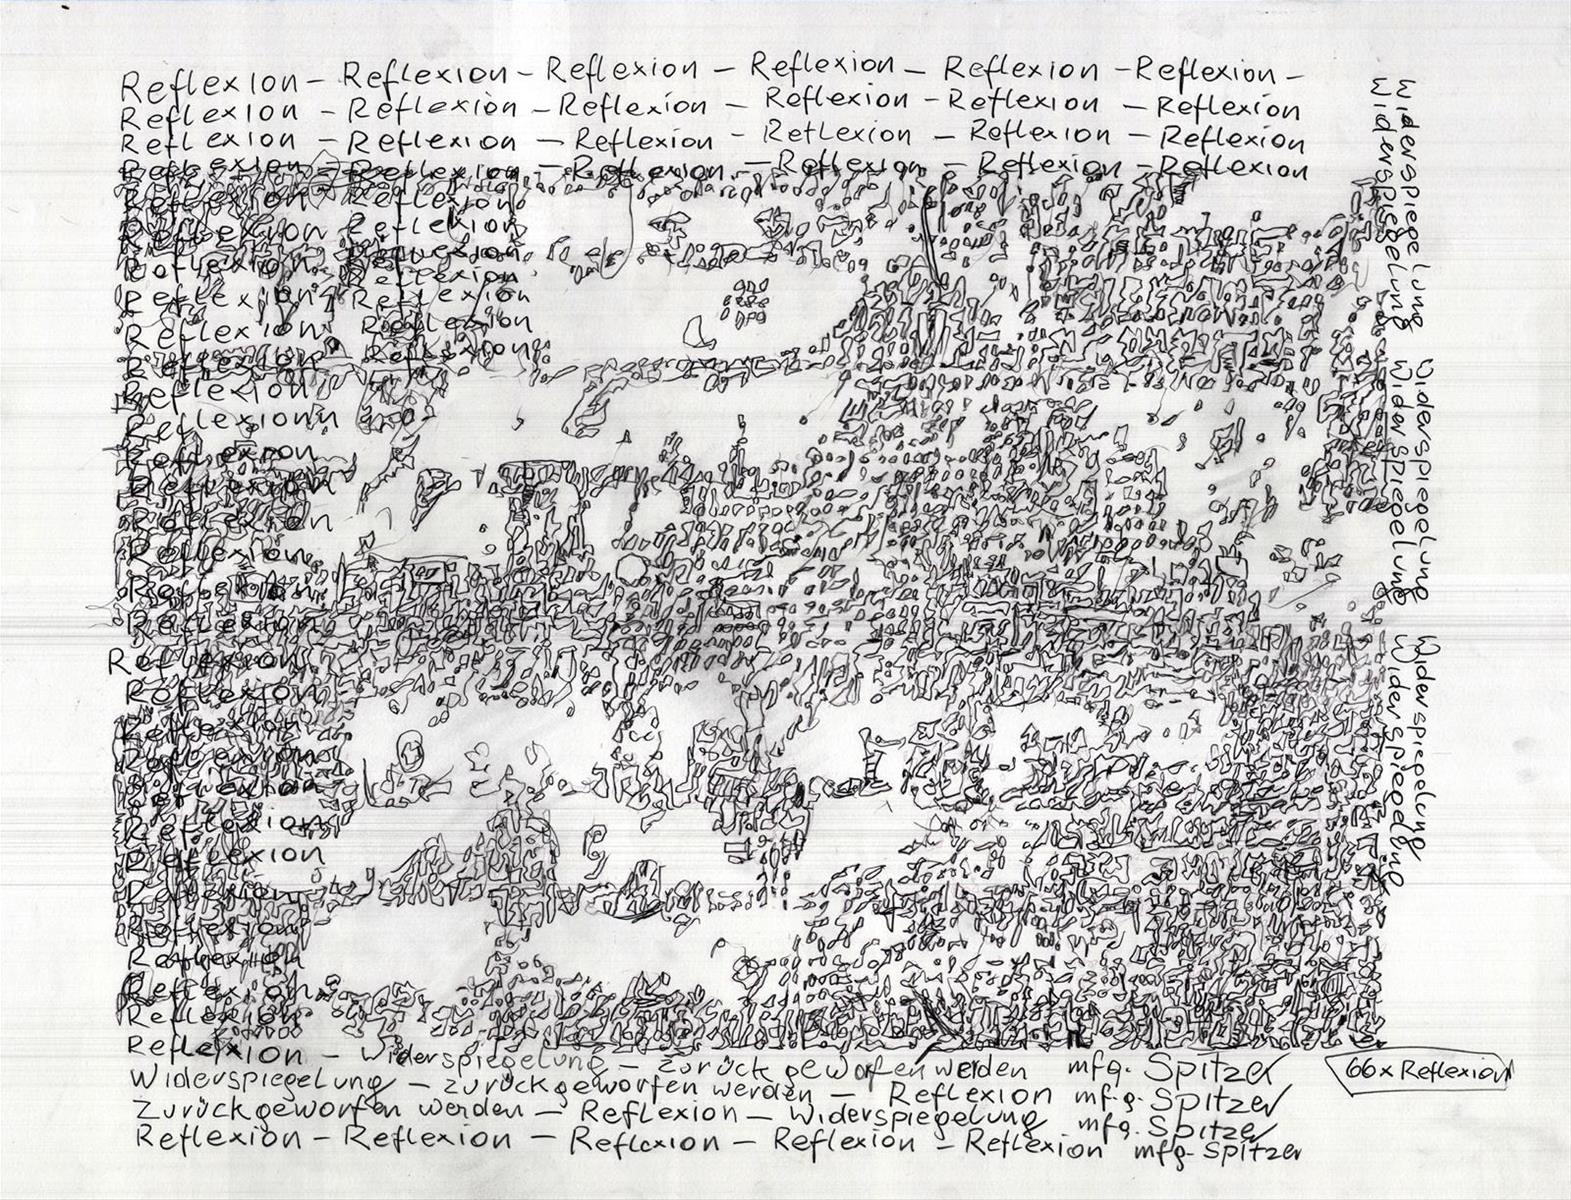 Reflexion – Reflexion – Reflexion – Reflexion – Reflexion – Reflexion –
Reflexion – Reflexion – Reflexion – Reflexion – Reflexion – Reflexion
Reflexion – Reflexion – Reflexion – Reflexion – Reflexion – Reflexion
Reflexion – Reflexion – Reflexion – Reflexion – Reflexion – Reflexion
Reflexion Reflexion
Reflexion Reflexion
Reflexion Reflexion
Reflexion Reflexion
Reflexion Reflexion
Reflexion Reflexion
Reflexion
Reflexion
Reflexionn
Reflexion
Reflexion
Reflexion
Reflexion
Reflexion
Reflexion
Reflexion
Reflexion
Reflexion
Reflexion
Reflexion
Reflexion
Reflexion
Reflexion
Reflexion
Reflexion
Reflexion
Widerspiegelung Widerspiegelung Widerspiegelung
Widerspiegelung Widerspiegelung Widerspiegelung
Reflexion – Widerspiegelung – Zurück geworfen werden mfg. Spitzer
Widerspiegelung – zurückgeworfen werden – Reflexion mfg. Spitzer
Zurückgeworfen werden – Reflexion – Widerspiegelung mfg. Spitzer
Reflexion – Reflexion – Reflexion – Reflexion – Reflexion mfg. Spitzer
66x Reflexion